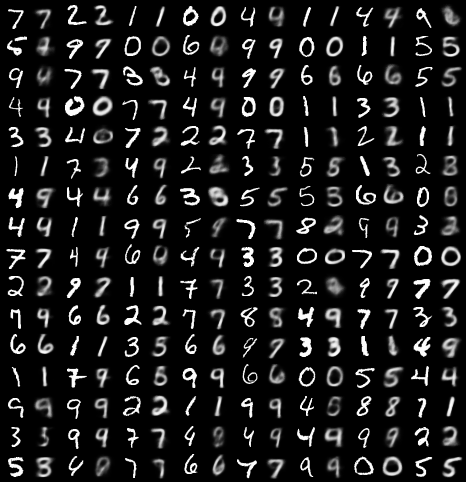 7 7 2 2 1 1 0 0 4 4 1 1 4 4 9
5 9 9 0 0 6 9 9 0 0 1 1 5 5
9 7 7 3 3 4 4 9 9 6 6 6 6 5 5
4 9 0 0 7 7 4 9 0 0 1 1 3 3 1 1
3 3 4 0 7 2 2 2 7 7 1 1 2 2 1 1
1 1 7 3 4 9 2 2 3 3 5 5 1 3 2 8
4 9 4 4 6 6 3 8 5 5 5 5 6 6 0 0
4 9 1 1 9 9 5 9 7 7 8 9 9 3 3
7 7 4 9 6 0 4 9 3 3 0 0 7 7 0 0
2 2 9 9 1 1 7 7 3 3 2 9 9 7 7
7 9 6 6 2 2 7 7 8 8 4 9 7 7 3 3
6 6 1 1 3 5 6 6 9 9 3 3 1 1 4 9
1 1 7 9 6 5 9 9 6 6 0 0 5 5 4 4
9 9 9 9 2 2 1 1 9 9 4 8 8 7 1
3 3 9 9 7 7 4 4 9 4 9 9 9 2 2
5 3 4 7 7 6 6 4 7 9 9 0 0 5 5